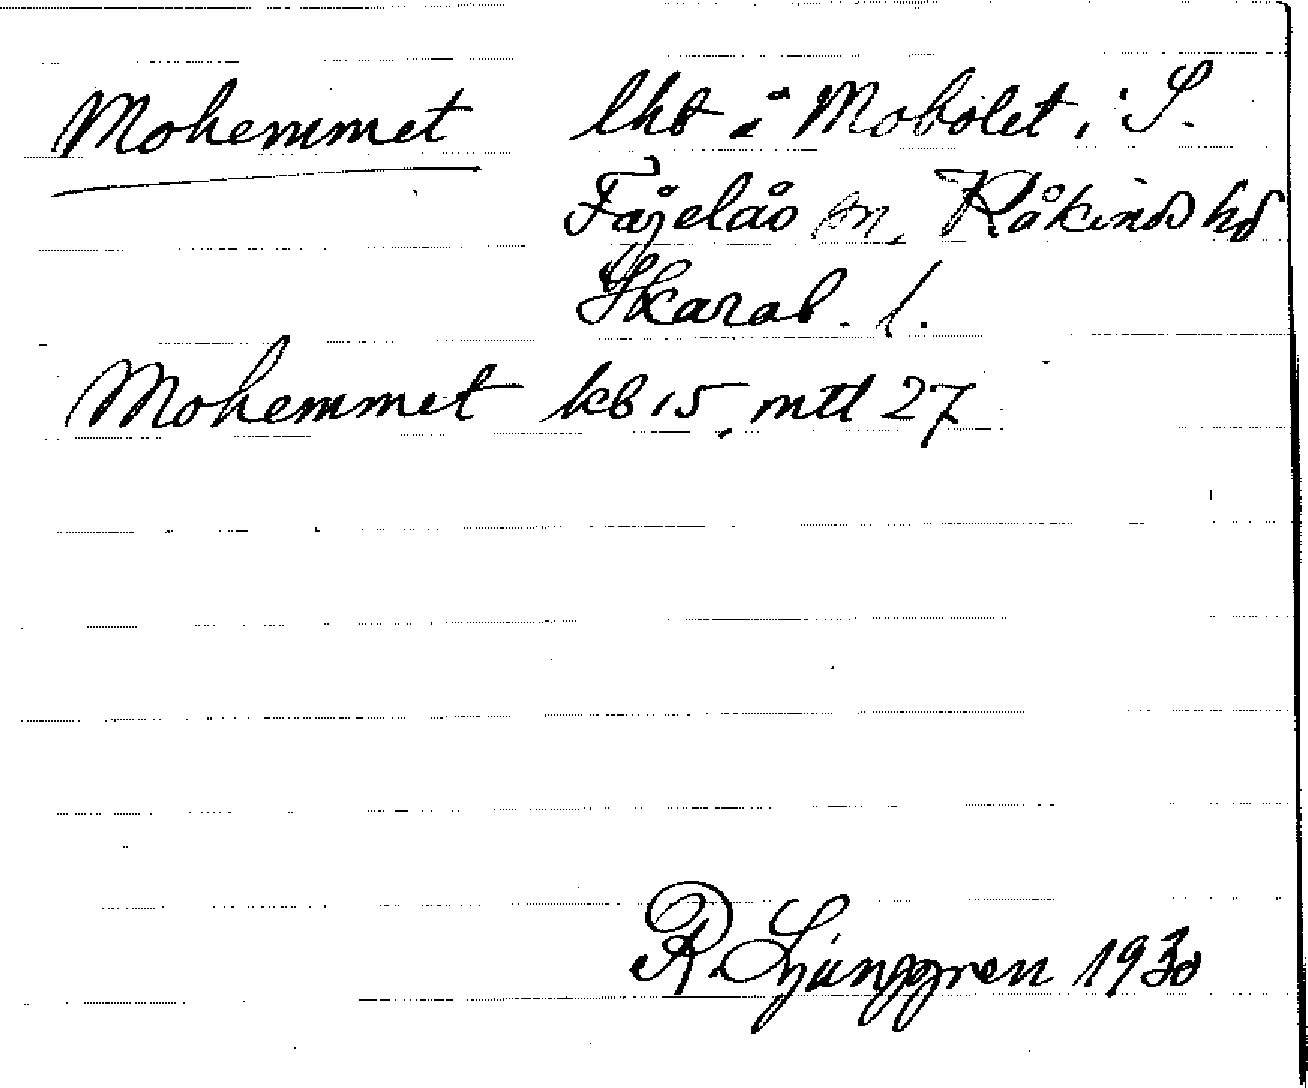 Mohemmet lht i Mobolet i S.
Fågelås sn, Kåkinds hd
Skarab. l.
Mohemmet kb 15, mtl 27
R. Ljunggren 1930